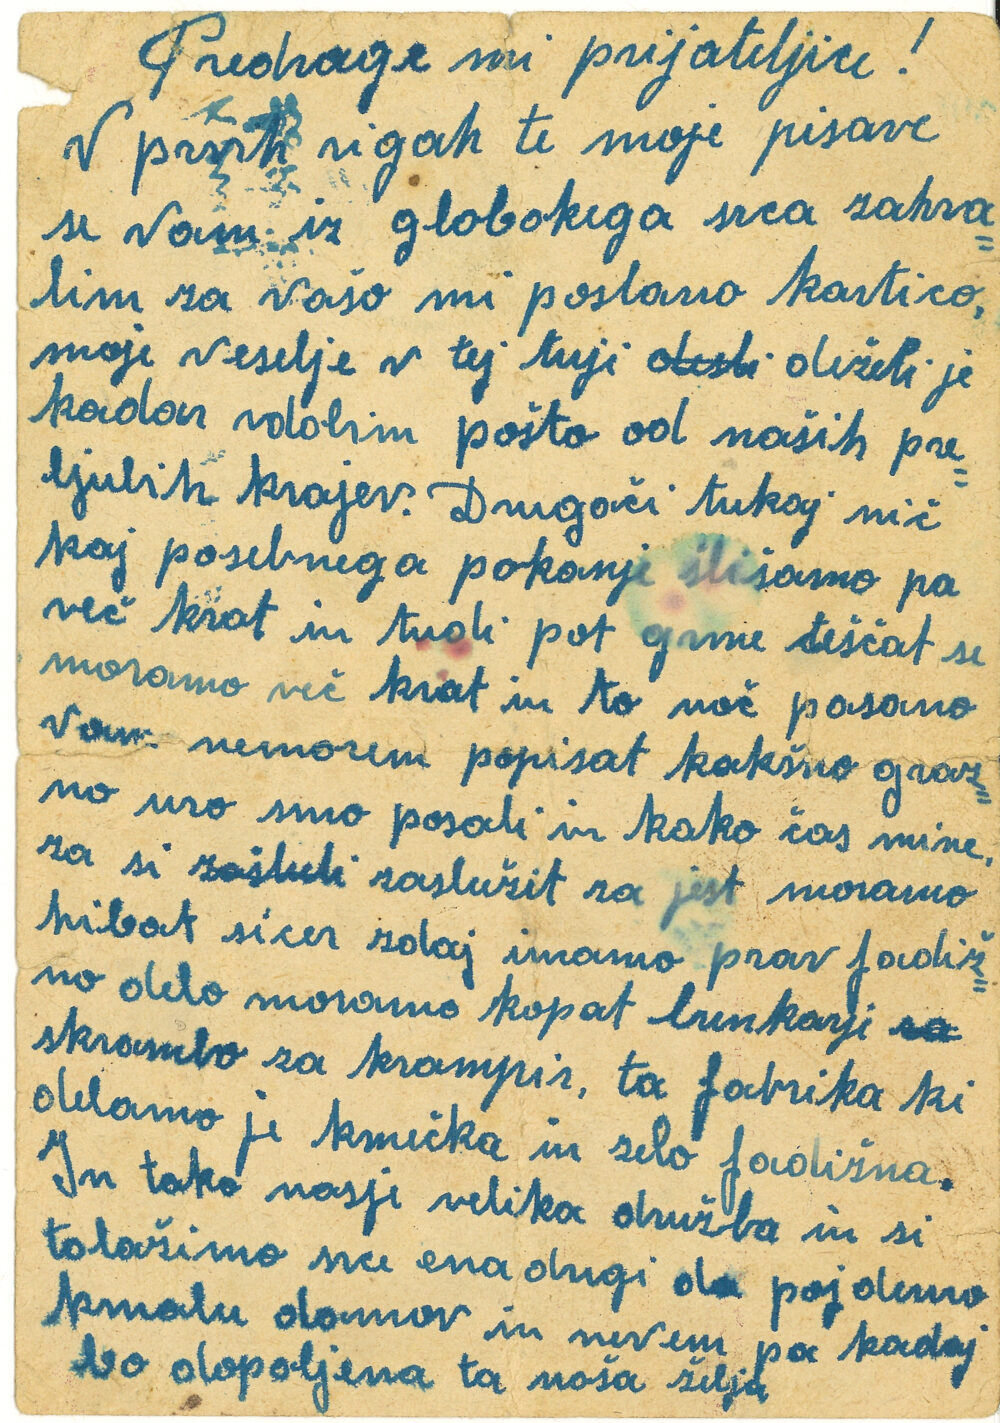 Predrage mi prijateljice!
V prvih vigah te moje pisave
se vam iz globokega srca zahva=
lim za vašo mi poslano kartico,
moje veselje v tej tuji deželi je
kadar vdobim pošto od naših pre=
ljubih krajev. Drugači tukaj nič
kaj posebnega pokanje slišamo pa
več krat in tudi pot grme teščat se
moramo več krat in to noč pasano
vam nemorem popisat kakšno graz=
no uro smo pasali in kako čas mine,
za si zaslužit za jest moramo
hibat sicer zdaj imamo prav fadiž=
no delo moramo kopat bunkarji za
skrambo za krampir, ta fabrika ki
delamo je kmečka in zelo fadižna.
In tako nasje velika družba in si
tolažimo srce ena drugi da pojdemo
kmalu damov in nevem pa kadaj
bo dopoljena ta naša želja